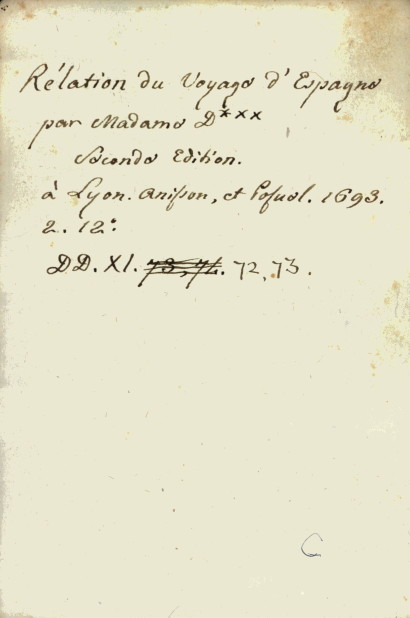 Rélation du Voyage d'Espagne
par Madame D***
Seconde Edition.
à Lyon. Anisson, et Posuel. 1693.
2. 12°.
DD. XI. 73, 74. 72, 73.